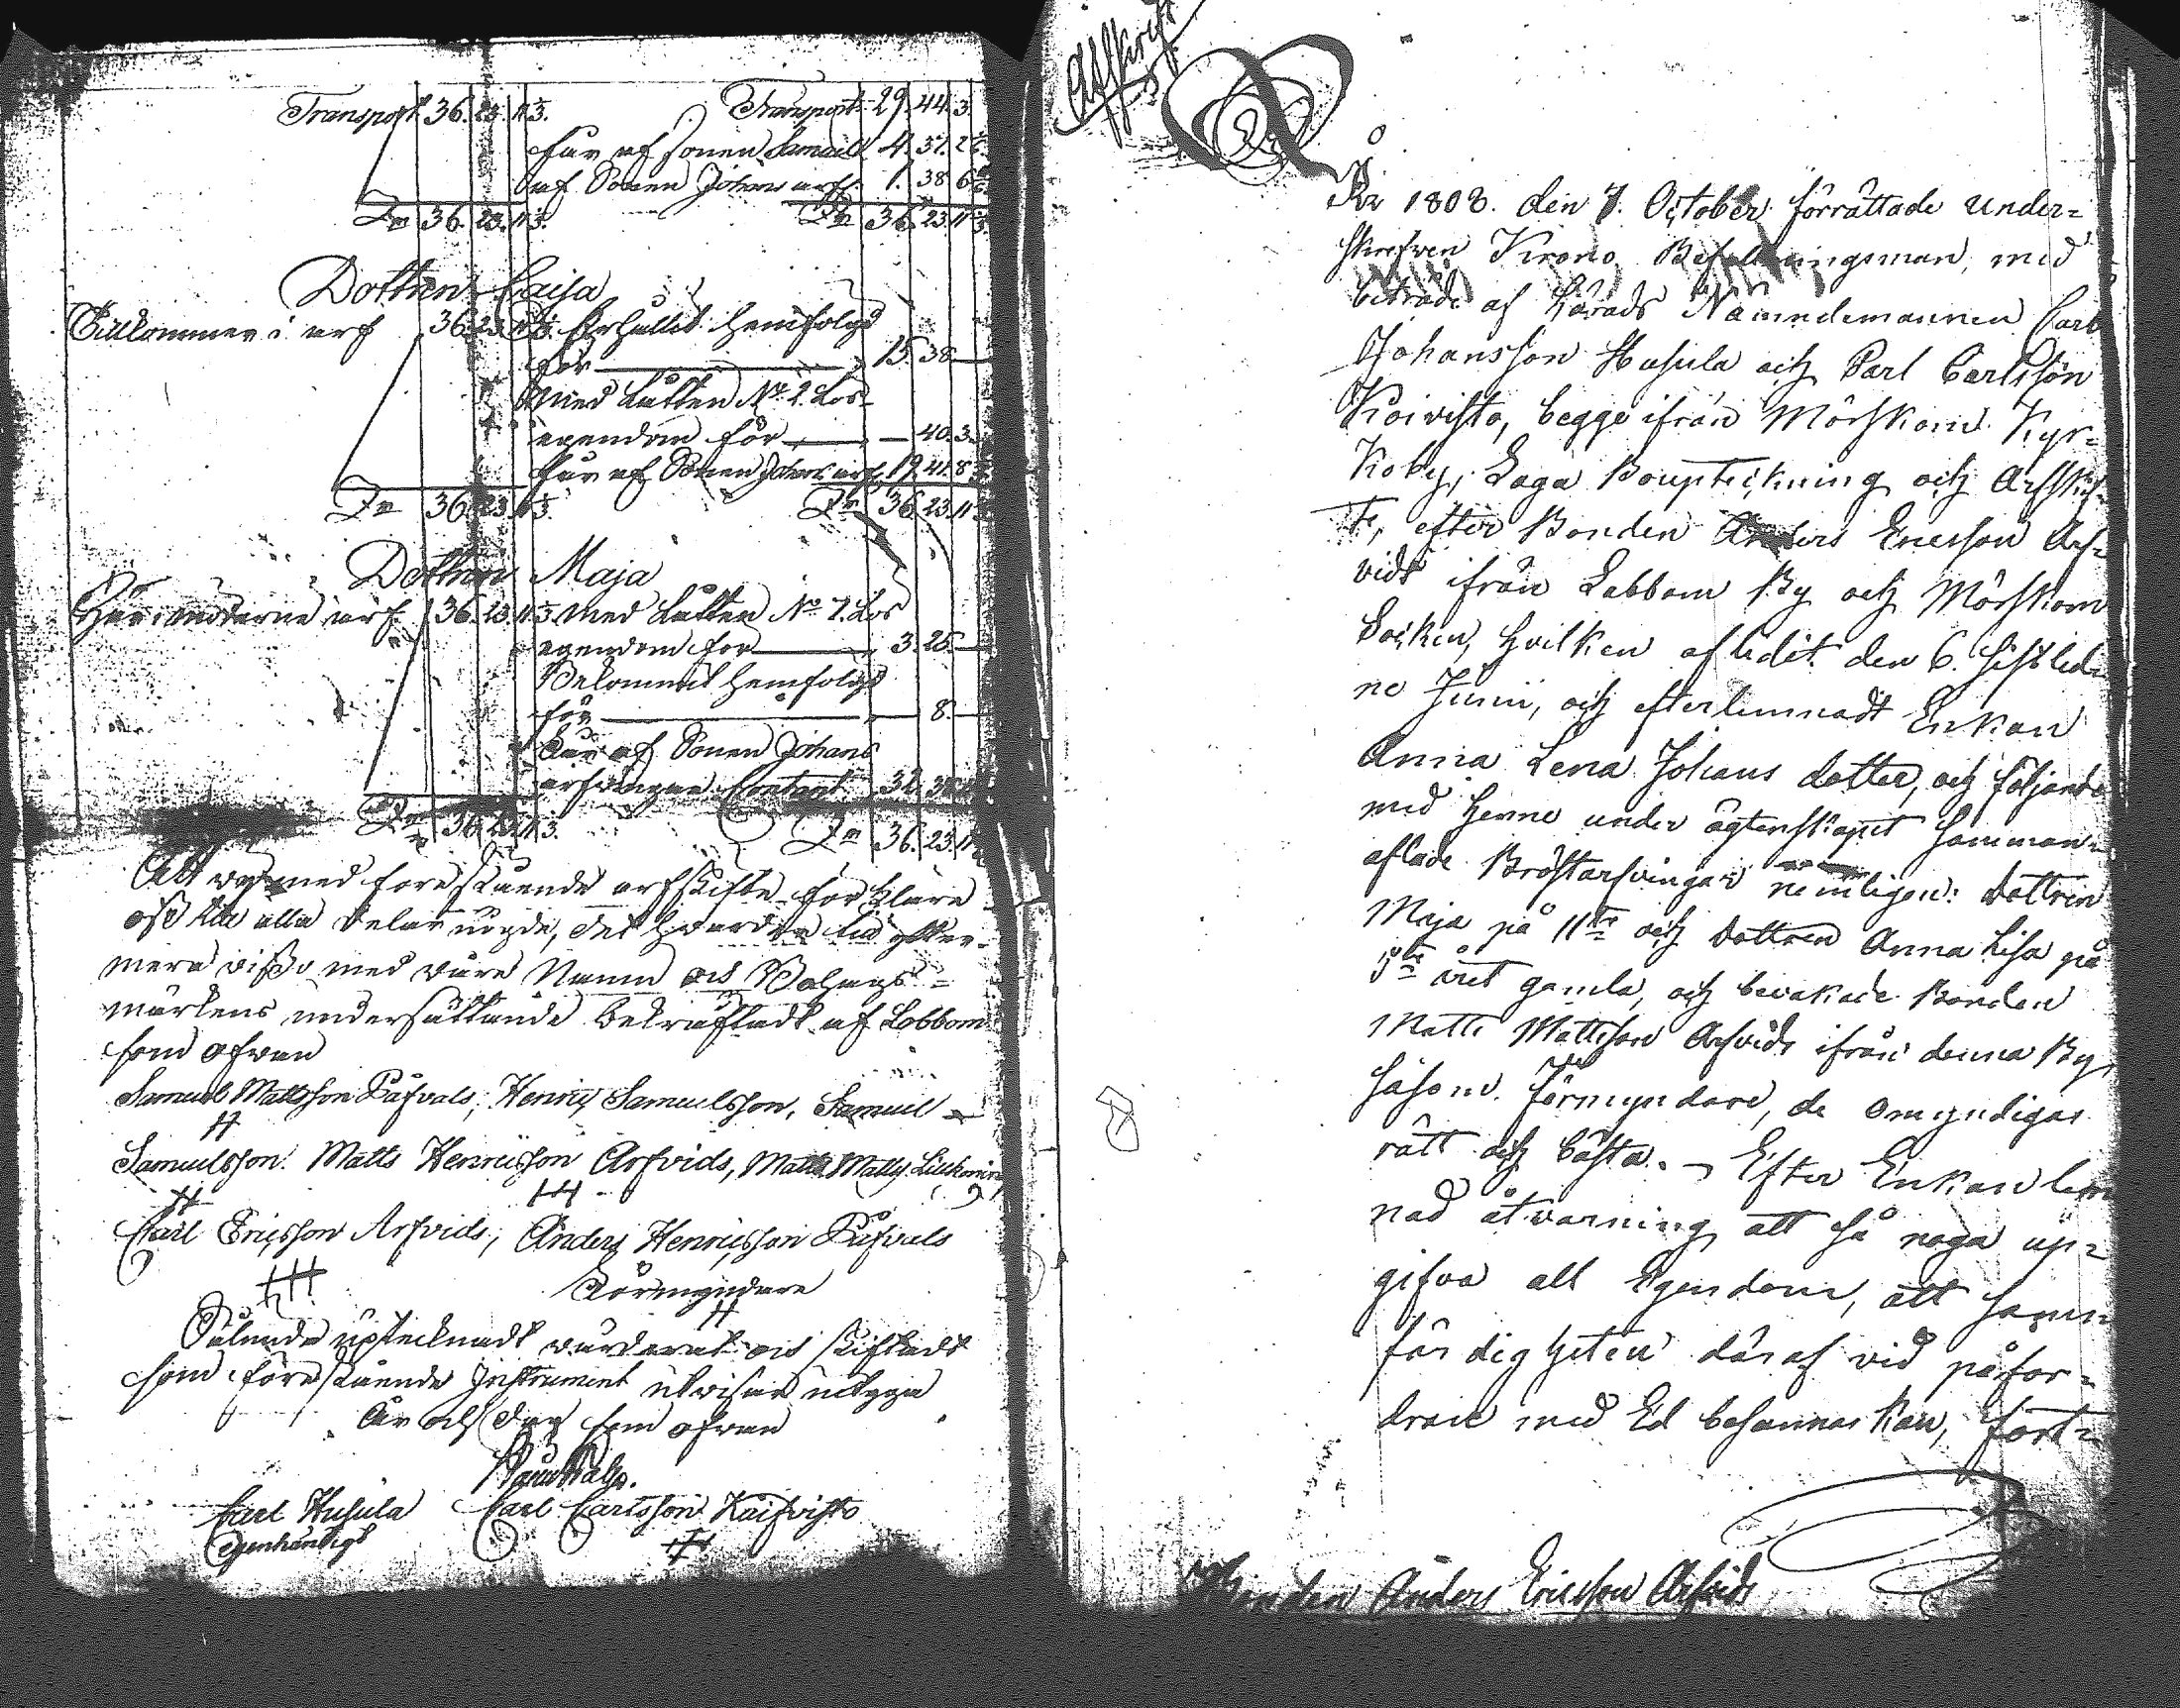 Transport 36. 23. 11 1/3. Transport 29. 44. 3.
får af sonen Samuel 4. 37. 2
af Sonen Johans arf. 1. 38 6
Sm 36. 23. 11 1/3. Sm 36. 23. 11 1/3.
Dottren Caisa
Tillkommer i arf 36. 23. 11 1/3. Erhållit hemfolgd
för 15. 38.
Med Lotten No 2. Lös
egendom för 40. 3.
får af Sonen Johans arf. 19. 41. 8
Sm 36. 23. 11 1/3. Sm 36. 23. 11 1/3
Dottren Maja
moderne arf. 36. 23. 11 1/3 Med Lotten No 7. Lös
egendom för 3. 25.
Bekommit hemfolgd
för 8.
Får af Sonen Johans
arfwingar Contant 32.
Sm 36. 23. 11 1/3. Sm 36. 23. 11
med förestående arfskifte förklare
oss till alla delar nögde, det ytter-
mera visso med våre Namn och Bolags-
märkens undersättande bekräftadt af Lobbom
som ofwan
Samuel Mattsson Påfvals, Henric Samuelsson, Samuel
Samuelsson. Matts Henricsson Arfvids, Matts Matts.
Carl Ericsson Arfvids, Anders Henricsson Påfvals
Förmyndare
Sålunda uptecknadt värderat och skiftadt
som förestående Instrument utvisar intyga
År och dag som ofwan
Carl Husula Carl Carlsson Koifvisto
Egenhändigt
Afskrift
År 1808. den 7. October förrättade under=
skrefven Krono Befallningsman, med
biträde af Härads Nämndemannen Carl
Johansson Husula och Carl Carlsson
Koivisto, begge ifrån Mörskom Kyr=
koby, Laga Bouptekning och Arfskif=
te, efter Bonden Anders Ericsson Arf=
vids ifrån Labbom By och Mörskom
Socken, hvilken aflidit den 6. sistled=
ne Junii, och efterlemnadt Enkan
Anna Lena Johans dotter, och följande
med henne under ägtenskapet samman=
aflade Bröstarfvingar nemligen: dottren
Maja på 11te och dottren Anna Lisa på
5te året gamla, och bevakade Bonden
Matts Mattsson Arfvids ifrån denna By,
såsom Förmyndare, de omyndigas
rätt och bästa. Efter Enkan lem
nad åtvarning att så noga up=
gifva all Egendom, att sann=
färdigheten däraf vid påfor=
dran med Ed besannas kan, fort=
Bonden Anders Ericsson Arfvids